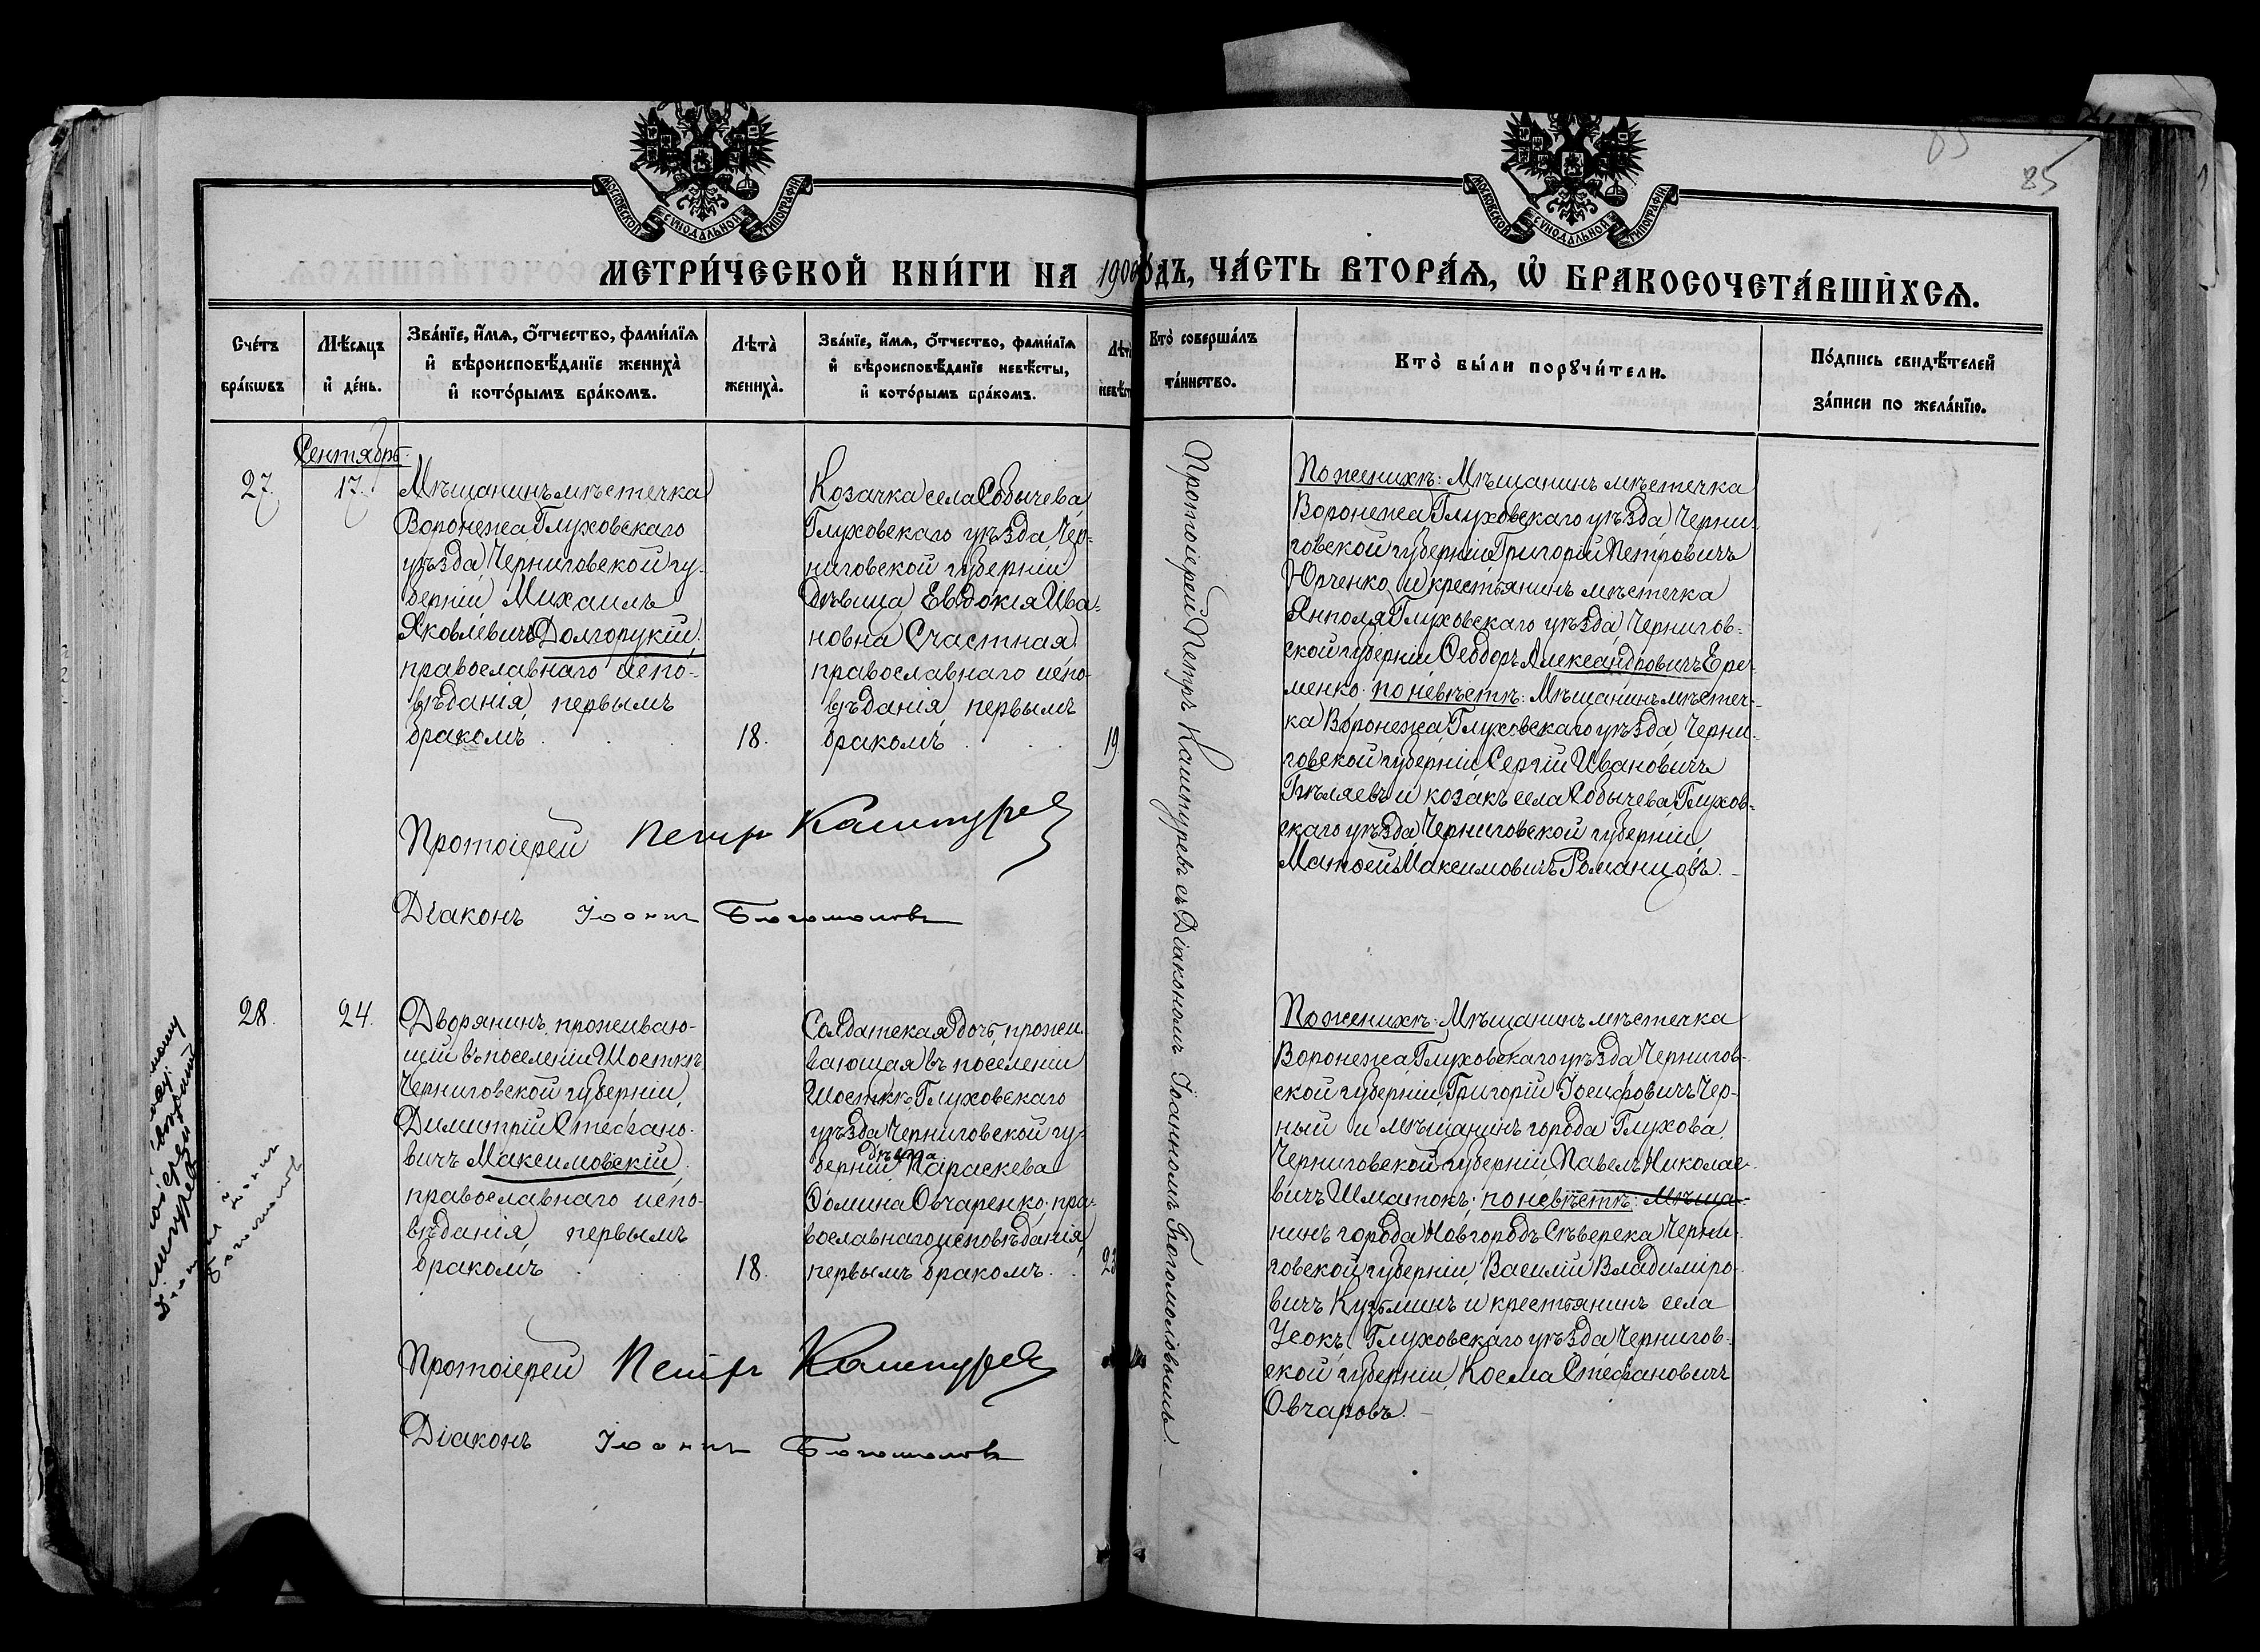 85
МОСКОВСКОЙ СѴНОДАЛЬНОЙ ТИПОГРАФІИ
МОСКОВСКОЙ СѴНОДАЛЬНОЙ ТИПОГРАФІИ
МЕТРИ́ЧЕСКОЙ КНИ́ГИ НА 190 ОДЪ, ЧА́СТЬ ВТОРА́Ѧ, Ѽ БРАКОСОЧЕТА́ВШИХСѦ.
Сче́тъ бра́кѡвъ
Мѣ́сѧцъ и҆ де́нь.
Зва́нїе, и҆́мѧ, ѻ҆́тчество, фами́лїѧ и҆ вѣроисповѣ́данїе жениха̀ и҆ кото́рымъ бра́комъ.
Лѣта̀ жениха̀.
Зва́нїе, и҆́мѧ, ѻ҆́тчество, фами́лїѧ и҆ вѣроисповѣ́данїе невѣ́сты, и҆ кото́рымъ бра́комъ.
Кто̀ соверша́лъ та́инство.
Кто̀ бы́ли порꙋчи́тели.
По́дпись свидѣ́телей за́писи по жела́нїю.
Сентябрь.
27.
17.
Мѣщанинъ мѣстечка
Воронежа Глуховскаго
уѣзда, Черниговской гу-
берніи Михаилъ
Яковлевичъ Долгорукій,
православнаго испо-
вѣданія, первымъ
бракомъ
18.
Козачка села Собычева
Глуховскаго уѣзда, Чер-
ниговской губерніи
дѣвица Евдокія Ива-
новна Счастная
православнаго испо-
вѣданія, первымъ
бракомъ
19.
Протоіерей Петръ Каштуревъ съ Діакономъ Іоанномъ Богомоловымъ.
По женихѣ: Мѣщанинъ мѣстечка
Воронежа Глуховскаго уѣзда, Черни-
говской губерніи Григорій Петровичъ
Юрченко и крестьянинъ мѣстечка
Янполя Глуховскаго уѣзда, Чернигов-
ской губерніи Ѳеодоръ Александровичъ Ере-
менко. по невѣстѣ: Мѣщанинъ мѣстеч-
ка Воронежа, Глуховскаго уѣзда, Черни-
говской губерніи Сергій Ивановичъ
Бѣляевъ и козакъ села Собычева, Глухов-
скаго уѣзда, Черниговской губерніи,
Матѳей Максимовичъ Романцовъ.
Протоіерей Петръ Каштуревъ
Діаконъ Іоаннъ Богомоловъ
28.
24.
Дворянинъ, проживаю-
щій въ поселеніи Шосткѣ,
Черниговской губерніи,
Димитрій Стефано-
вичъ Максимовскій,
православнаго испо-
вѣданія, первымъ
бракомъ
18.
Солдатская дочь, прожи-
вающая въ поселеніи
Шосткѣ, Глуховскаго
уѣзда Черниговской гу-
берніи дѣвица Параскева
Ѳомина Овчаренко, пра-
вославнаго исповѣданія,
первымъ бракомъ.
23
По женихѣ: Мѣщанинъ мѣстечка
Воронежа, Глуховскаго уѣзда, Чернигов-
ской губерніи, Григорій Іосифовичъ Чер-
ный и мѣщанинъ города Глухова,
Черниговской губерніи Павелъ Николае-
вичъ Шматокъ; по невѣстѣ: Мѣща-
нинъ города Новгородъ Сѣверска Черни-
говской губерніи, Василій Владиміро-
вичъ Кузьминъ и крестьянинъ села
Усокъ, Глуховскаго уѣзда Чернигов-
ской губерніи, Косма Стефановичъ
Овчаровъ.
Протоіерей Петръ Каштуревъ
Діаконъ Іоаннъ Богомоловъ